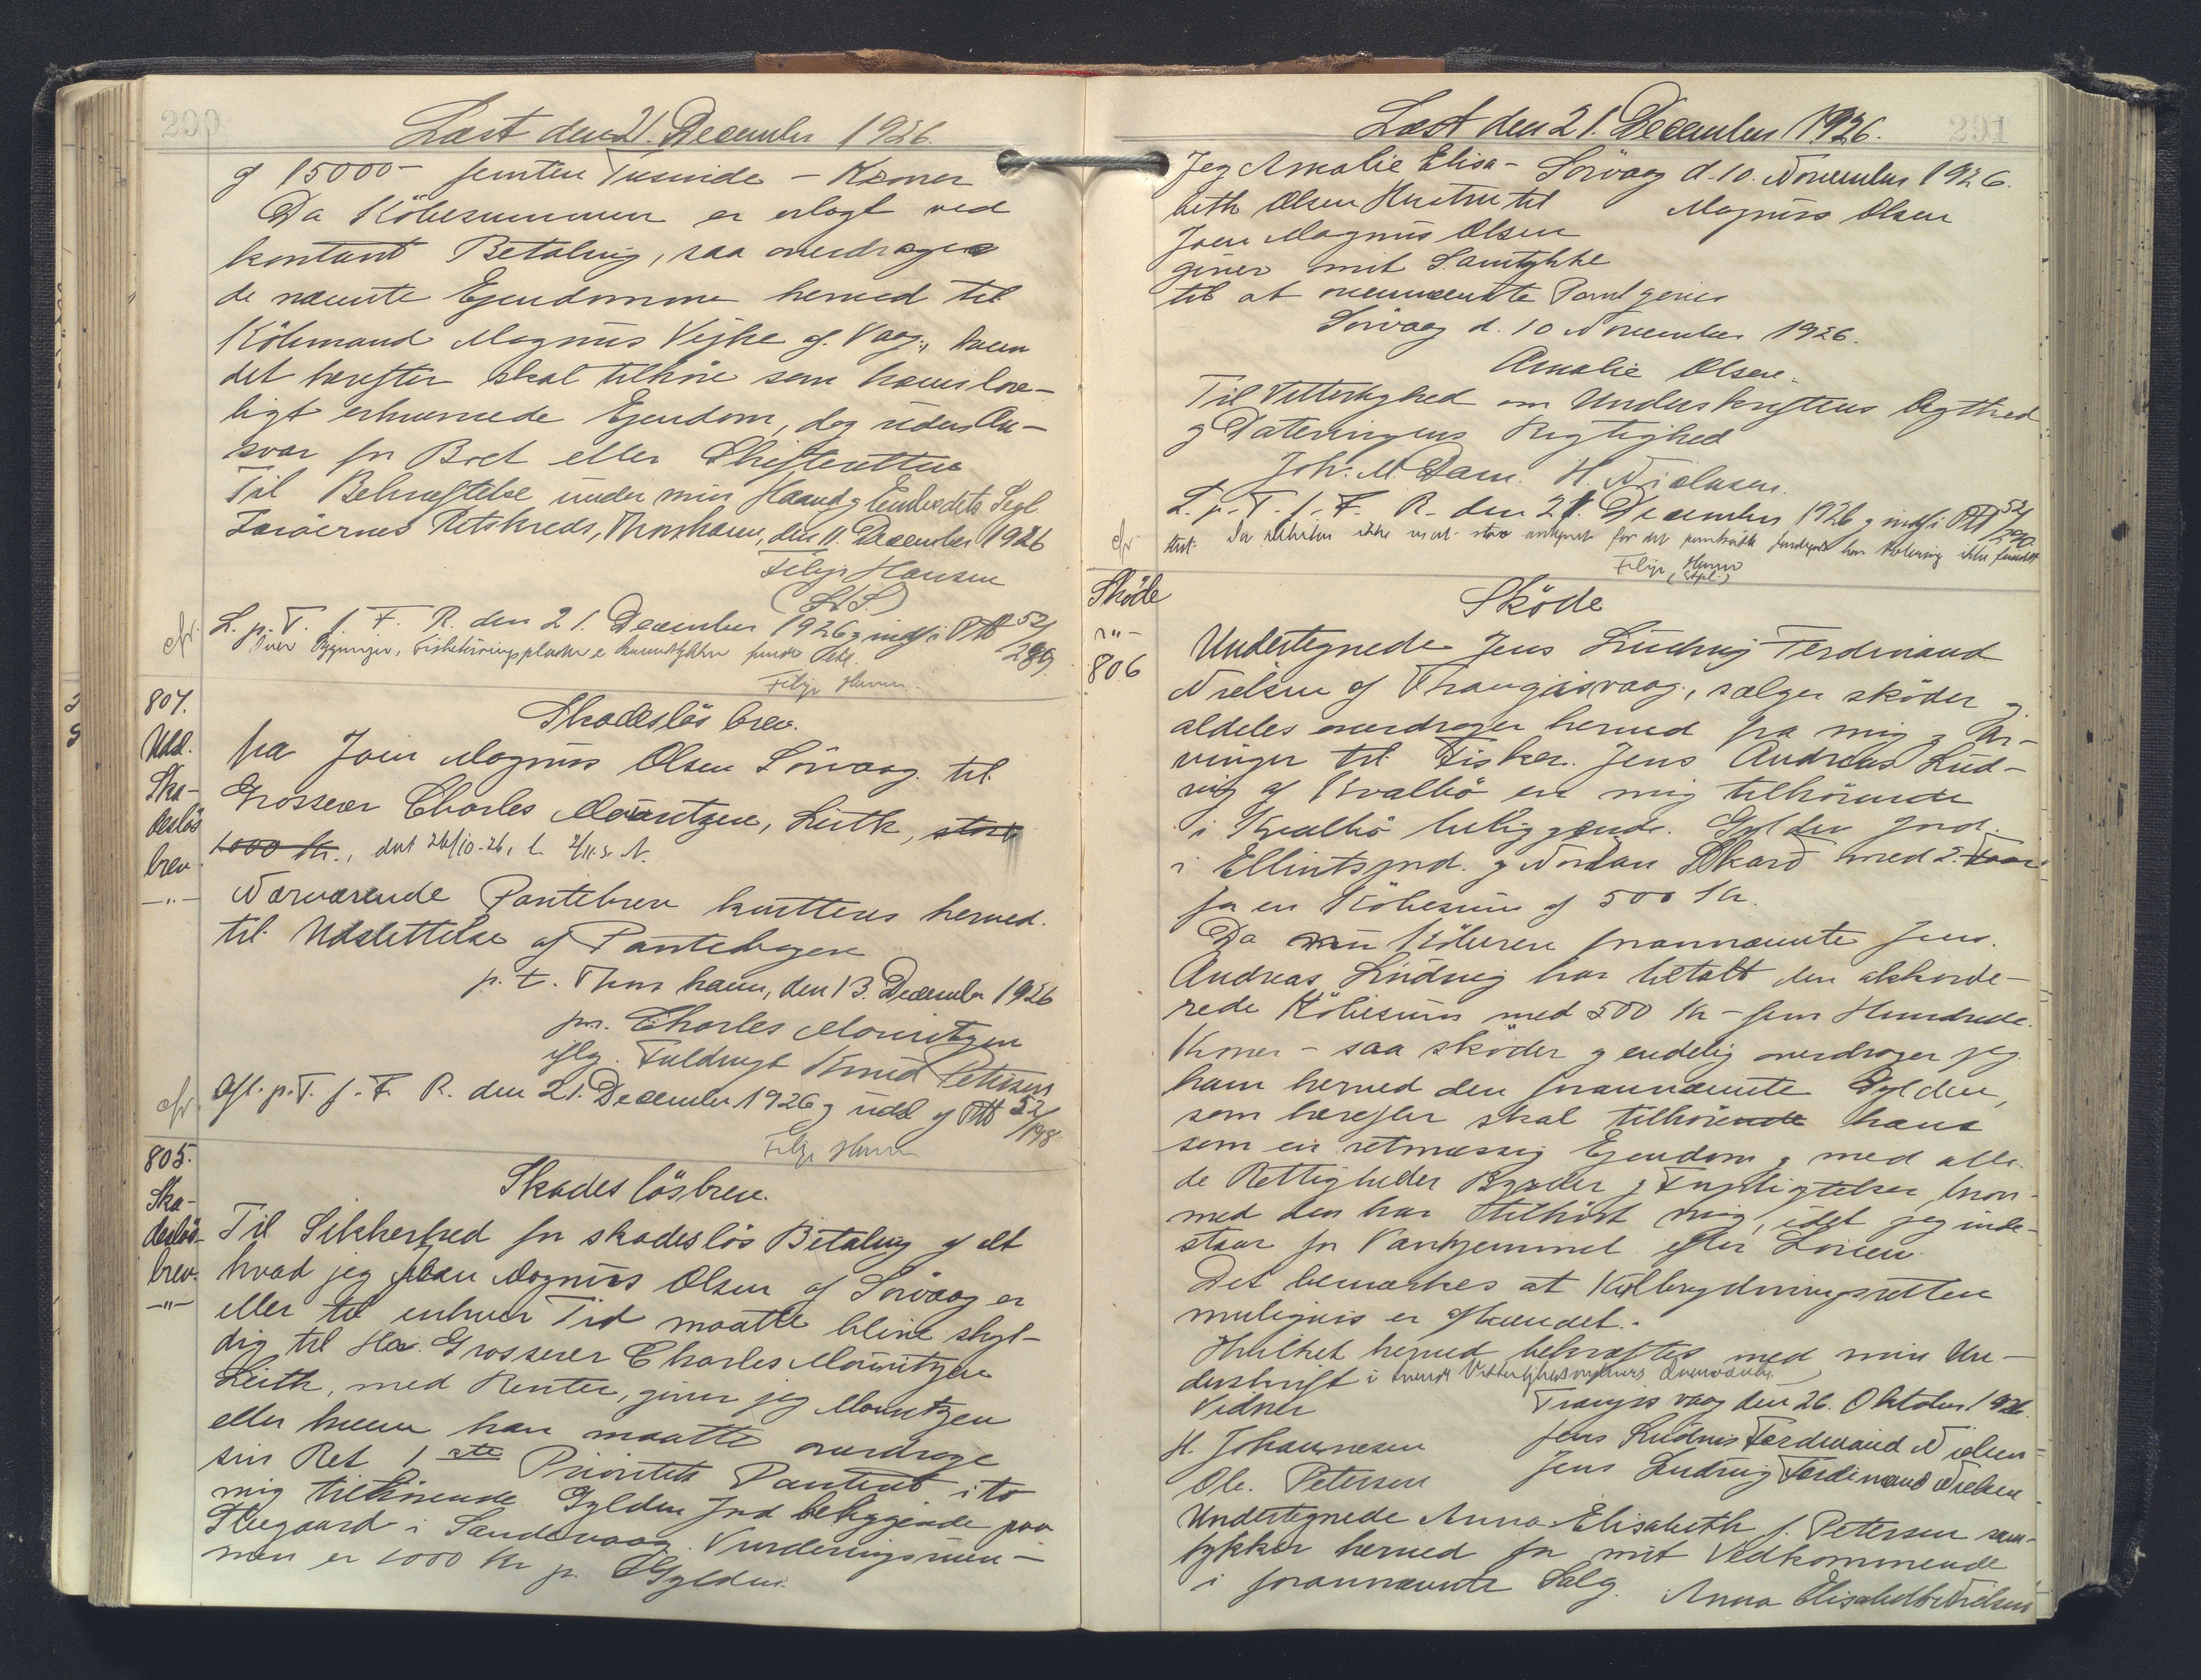 290
Læst den 21. December 1926.
af 15000 - femten Tusinde - Kroner
Da Köbesummen er erlagt ved
kontant Betaling, saa overdrages
de nævnte Ejendomme herved til
Köbmand Magnus Vejhe af Vaag, hvem
det herefter skal tilhöre som hans lov-
ligt erhvervede Ejendom, dog uden An-
svar for Boet eller Skifteretten
Til Bekræftelse under min Haand og Embedets Segl.
Færöernes Retskreds, Thorshavn, den 11. December 1926
Filip Hansen
(L.S.)
cfr. L. p. T. f. F. R. den 21. December 1926 og indf. i Ptb 52/289.
Filip Hansen.
804.
Udsl.
Ska-
deslös
brev
-"-
Skadeslösbrev.
fra Joen Magnus Olsen Sörvaag til
Grosserer Charles Mouritzen, Leith, stort
1000 Kr., dat 26/10-26, l. 2/11 s. A.
Nærværende Pantebrev kvitteres herved.
til Udslettelse af Pantebogen
p.t. Thorshavn, den 13. December 1926
pr. Charles Mouritzen
iflg. Fuldmagt Knud Petersen
cfr. Afl. p. T. f. F. R. den 21. December 1926 og udsl. af Ptb 52/198
Filip Hansen
805.
Ska-
deslös-
brev.
-"-
Skadeslösbrev.
Til Sikkerhed for skadeslös Betaling af alt
hvad jeg Joen Magnus Olsen af Sörvaag er
eller til enhver Tid maatte blive skyl-
dig til Hr. Grosserer Charles Mouritzen
Leith, med Renter, giver jeg Mouritzen
eller hvem han maatte overdrage
sin Ret 1ste Prioritets Panteret i to
mig tilhörende Gylden Jord beliggende paa
i Sandevaag. Vurderingssum-
men er 1000 Kr pr. Gylden.
291
Læst den 21. December 1926.
Jeg Amalie Elisa- Sörvaag d. 10. November 1926.
beth Olsen Hustru til Magnus Olsen
Joen Magnus Olsen
giver mit Samtykke
til at ovennævnte Pant gives
Sörvaag d. 10 November 1926.
Amalie Olsen.
Til Vitterlighed om Underskriftens Ægthed
og Dateringens Rigtighed
Joh. M. Dam. H. Nielsen.
cfr. L. p. T. f. F. R. den 21. December 1926 og indf. i Ptb 52/290.
Filip Hansen
Sköde
-"-
806
Sköde
Undertegnede Jens Ludvig Ferdinand
Nielsen af Thrangisvaag, sælger sköder og
aldeles overdrager herved fra mig og Ar-
vinger til Fisker Jens Andreas Lud-
vig af Kvalbö en mig tilhörende
i Kvalbö beliggende. Gylden Jord.
i Ellintsjord. og Nordan Skard med 2. Faar
for en Köbesum af 500 Kr.
Da nu Köberen forannævnte Jens.
Andreas Ludvig har betalt den akkorde-
rede Köbesum med 500 Kr - fem Hundrede.
Kroner - saa sköder og endelig overdrager jeg
ham herved den forannævnte Gylden,
som herefter skal tilhörende hans
som en retmæssig Ejendom, med alle.
de Rettigheder Byrder og Forpligtelser, hvor-
med den har tilhört mig, idet jeg inde-
staar for Vanhjemmel efter Loven.
Det bemærkes at Kulbrydningsretten
muligvis er afhændet.
Hvilket herved bekræftes med min Un-
derskrift i tvende Vitterlighedsvidners Overværelse.
Vidner Trangisvaag den 26. Oktober 1926.
H. Johannesen Jens Ludvig Ferdinand Nielsen
Ole. Petersen Jens Ludvig Ferdinand Nielsen
Undertegnede Anna Elisabeth f. Petersen sam-
tykker herved for mit Vedkommende
i forannævnte Salg. Anna Elisabeth Nielsen